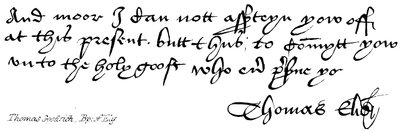 And moor I can nott assteyn yow off
at this present. butt thus, to comytt yow
vnto the holy goost who eu' p'sue yo
Thomas Elie
Thomas Goodrich. Bp: of Ely